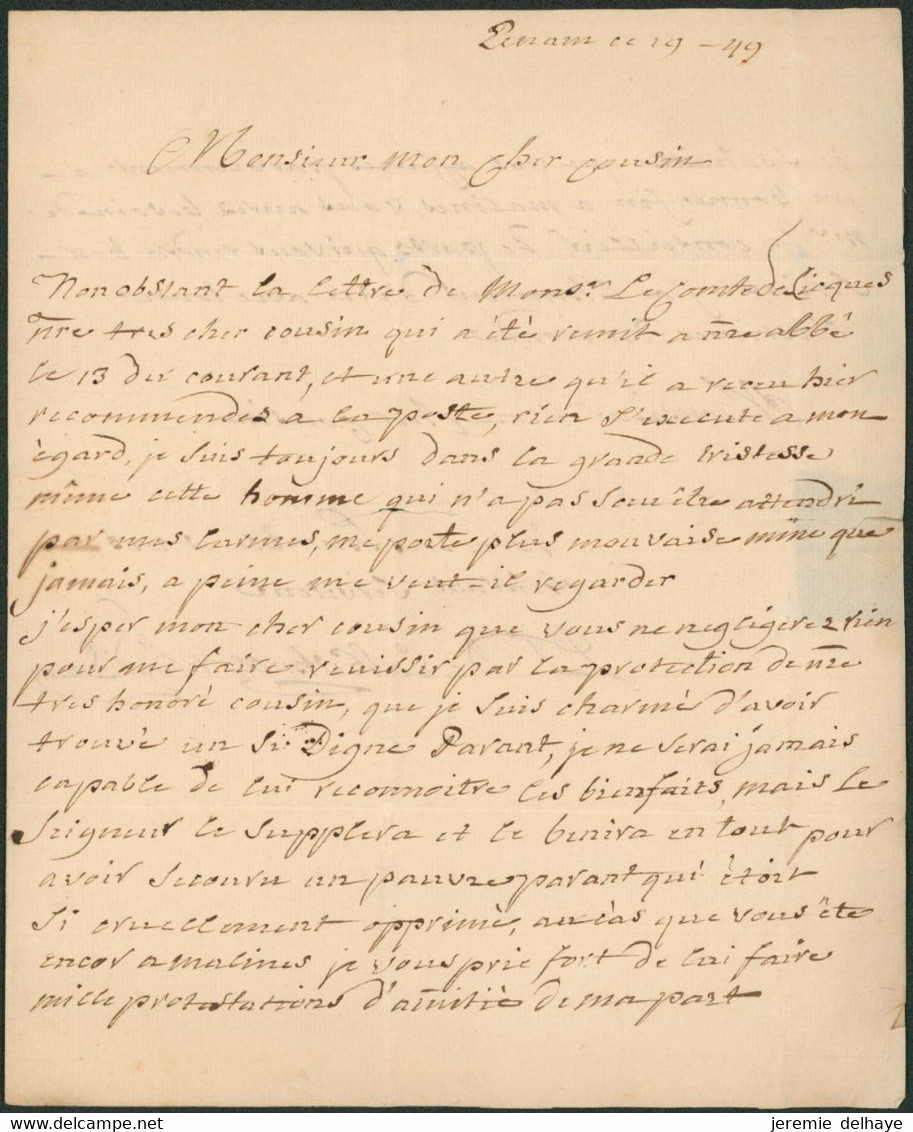 ce 19 - 49
Monsieur mon cher cousin
Nonobstant la lettre de Monsr Le Comte de Licques
nre tres cher cousin qui a été remit a nre abbé
le 13 du courant, et une autre qu'il a receu hier
recommendes a la poste, rien s'execute a mon
ègard, je suis toujours dans la grande tristesse
même cette homme qui n'a pas sceu être attendri
par mes larmes, me porte plus mouvaise mine que
jamais, a peine me veut-il regarder
j'esper mon cher cousin que vous ne negligerez rien
pour me faire reuissir par la protection de nre
tres honoré cousin, que je suis charmè d'avoir
trouvè un si Digne Parant, je ne serai jamais
capable de lui reconnoitre les bienfaits, mais Le
Seigneur le supplera et le benira en tout pour
avoir secouru un pauvre parant qui ètoit
si cruellement opprimè, au cas que vous ête
encor a malines je vous prie fort de lui faire
mille protestations d'amitiè de ma part
jeremie delhaye